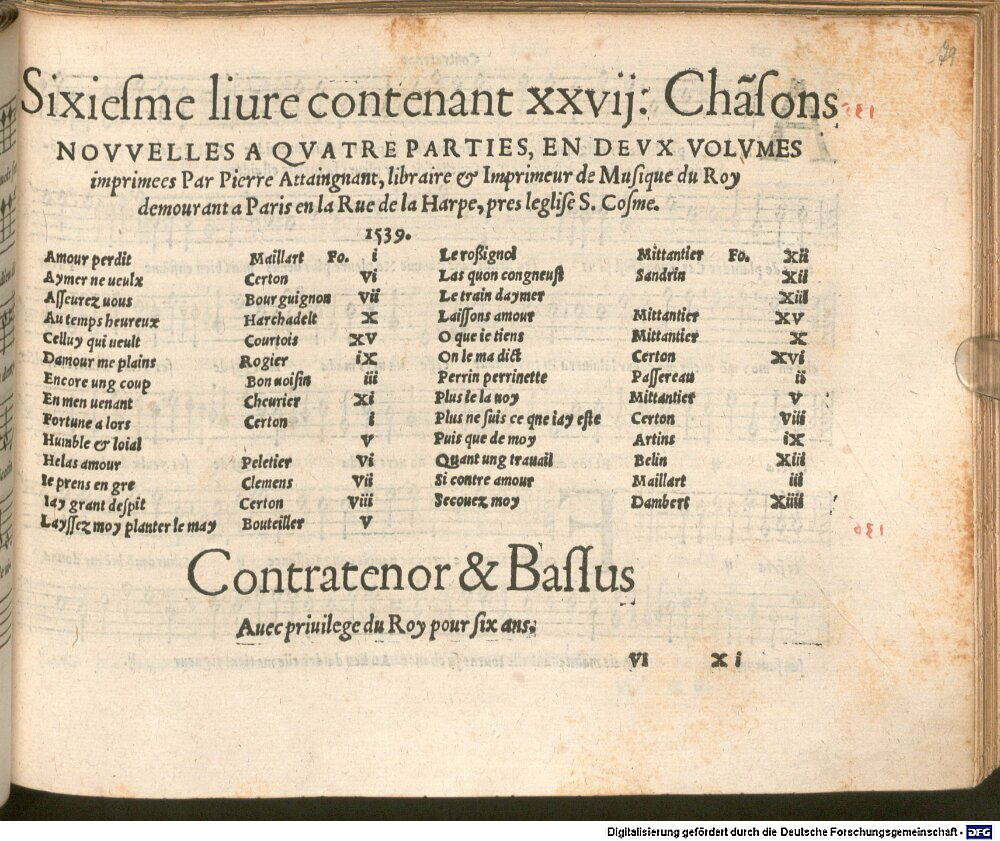 79
Sixiesme liure contenant xxvij: Chãsons
NOVVELLES A QVATRE PARTIES, EN DEVX VOLVMES
imprimees Par Pierre Attaingnant, libraire & Imprimeur de Musique du Roy
demourant a Paris en la Rue de la Harpe, pres leglise S. Cosme.
1539.
Amour perdit Maillart Fo. i Le rossignol Mittantier Fo. Xii
Aymer ne ueulx Certon Vi Las quon congneust Sandrin Xii
Asseurez uous Bourguignon Vii Le train daymer Xiii
Au temps heureux Harchadelt X Laissons amour Mittantier XV
Celluy qui ueult Courtois XV O que ie tiens Mittantier X
Damour me plains Rogier iX On le ma dict Certon XVi
Encore ung coup Bon uoisin iii Perrin perrinette Passereau ii
En men uenant Cheurier Xi Plus ie la uoy Mittantier V
Fortune a lors Certon i Plus ne suis ce que iay este Certon Viii
Humble & loial V Puis que de moy Artins iX
Helas amour Peletier Vi Quant ung trauail Belin Xiii
Ie prens en gre Clemens Vii Si contre amour Maillart iii
Iay grant despit Certon Viii Secouez moy Dambert Xiiii
Layssez moy planter le may Bouteiller V
Contratenor & Bassus
Auec priuilege du Roy pour six ans.
VI X i
Digitalisierung gefördert durch die Deutsche Forschungsgemeinschaft - DFG